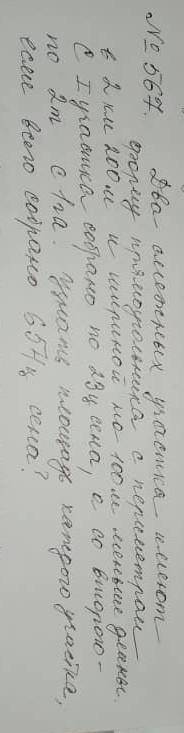 № 567. Два смежных участка имеют
форму прямоугольника с периметром
в 2 км 200м и шириной на 100м меньше длины.
С I участка собрано по 23ц сена, а со второго -
по 2т с 1га. Узнать площадь каждого участка,
если всего собрано 657ц сена?